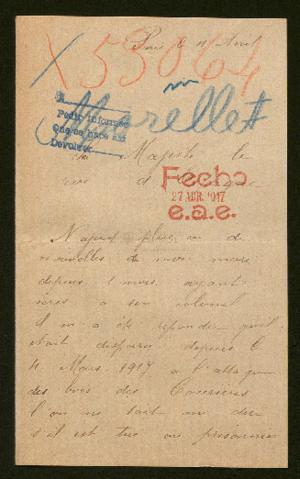 Paris le 11 Avril
X 53064
Morelle #
Pedir informes
que se hace así
Devolver
Sa Majesté le
roi d'Espagne
Fecho
27 ABR. 1917
e.a.e.
N'ayant plus eu de
nouvelles de mon mari
depuis 1 mois ayant
à son colonel
Il m'a été repondu qu'il
etait disparu depuis le
4 Mars 1917 a l'attaque
des bois des Caurieres
l'on ne sait au
s'il est tué ou prisonnier